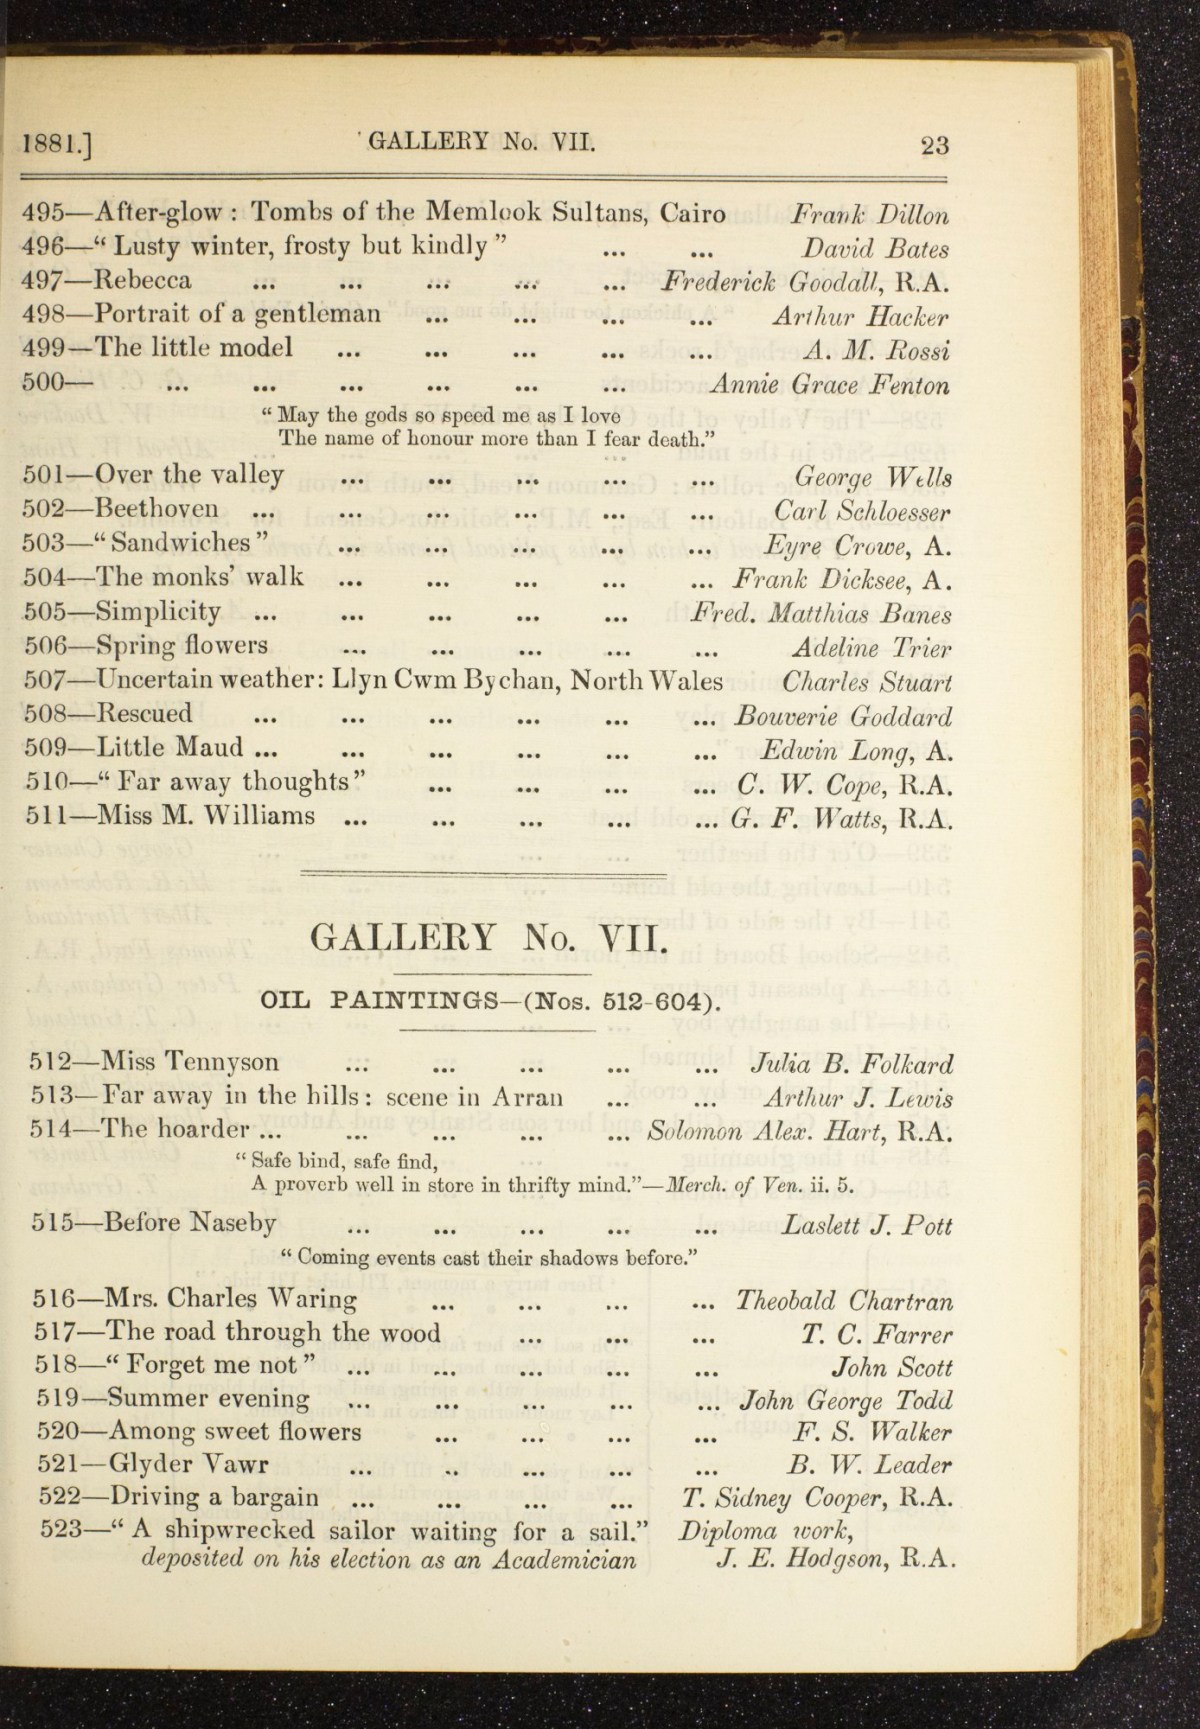 1881.] GALLERY No. VII. 23
495—After-glow : Tombs of the Memlook Sultans, Cairo Frank Dillon
496—“ Lusty winter, frosty but kindly ” ... ... David Bates
497—Rebecca ... ... ... ... ... Frederick Goodall, R.A.
498—Portrait of a gentleman ... ... ... ... Arthur Hacker
499—The little model ... ... ... ... ... A. M. Rossi
500— ... ... ... ... ... ... Annie Grace Fenton
“ May the gods so speed me as I love
The name of honour more than I fear death.”
501—Over the valley ... ... ... ... ... George Wells
502—Beethoven ... ... ... ... ... ... Carl Schloesser
503—“ Sandwiches ” ... ... ... ... ... Eyre Crowe, A.
504—The monks’ walk ... ... ... ... ... Frank Dicksee, A.
505—Simplicity ... ... ... ... ... Fred. Matthias Banes
506—Spring flowers ... ... ... ... ... Adeline Trier
507—Uncertain weather: Llyn Cwm Bychan, North Wales Charles Stuart
508—Rescued ... ... ... ... ... ... Bouverie Goddard
509—Little Maud ... ... ... ... ... ... Edwin Long, A.
510—“ Far away thoughts” ... ... ... ... C. W. Cope, R.A.
511—Miss M. Williams ... ... ... ... ... G. F. Watts, R.A.
GALLERY No. VII.
OIL PAINTINGS—(Nos. 512-604).
512—Miss Tennyson ... ... ... ... ... Julia B. Folkard
513—Far away in the hills : scene in Arran ... ... Arthur J. Lewis
514—The hoarder ... ... ... ... ... Solomon Alex. Hart, R.A.
“ Safe bind, safe find,
A proverb well in store in thrifty mind.”—Merch. of Ven. ii. 5.
515—Before Naseby ... ... ... ... ... Laslett J. Pott
“ Coming events cast their shadows before.”
516—Mrs. Charles Waring ... ... ... ... Theobald Chartran
517—The road through the wood ... ... ... T. C. Farrer
518—“ Forget me not ” ... ... ... ... ... John Scott
519—Summer evening ... ... ... ... ... John George Todd
520—Among sweet flowers ... ... ... ... F. S. Walker
521—Glyder Vawr ... .. ... ... ... B. W. Leader
522—Driving a bargain ... ... ... ... T. Sidney Cooper, R.A.
523—“ A shipwrecked sailor waiting for a sail.” Diploma work,
deposited on his election as an Academician J. E. Hodgson, R.A.